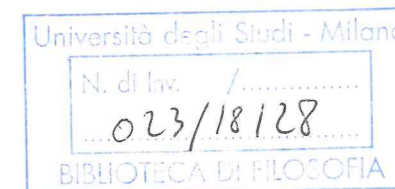 Università degli Studi - Milano
N. di Inv. /...............
023/18128
BIBLIOTECA DI FILOSOFIA